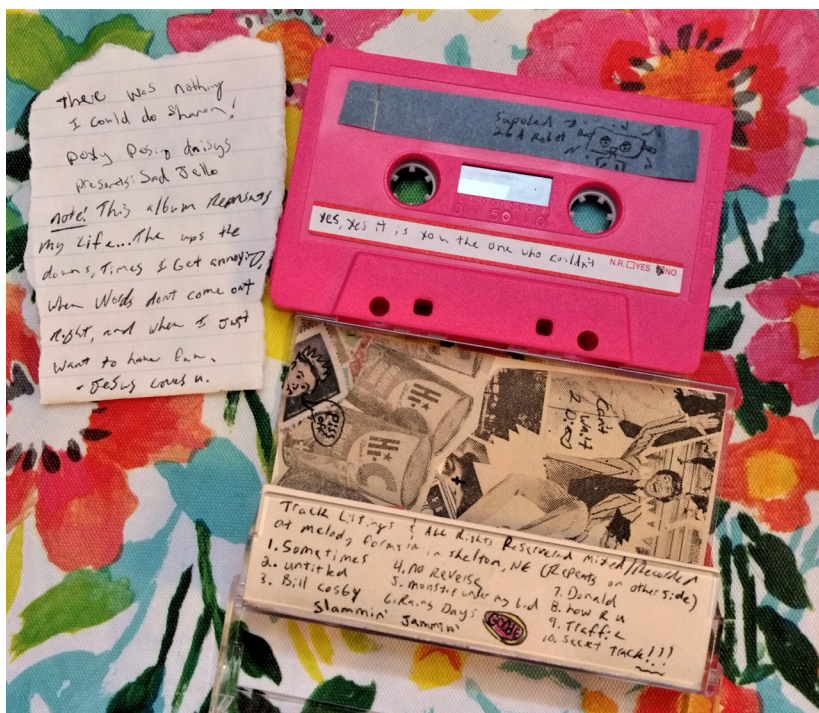 There was nothing
I could do Sharon!
poxy posin daisys
presents: Sad Jello
note! This album Represents
my Life...The ups the
downs, Times I Get annoying,
when Words dont come out
Right, and when I Just
want to have fun.
- Jesus Loves u.
2 b A Robot
50
yes, yes it is you the one who couldn't
N.R. YES NO
PISS OFF
Hi-C
Hi-C
Can't
Wait
2 Disco
Track Listings & ALL Rights Reserveled Mixed/Recorded
at melody farms in in shelton, NE (Repeats on other side)
1. Sometimes
2. untitled
3. Bill Cosby
4. no Reverse
5. monster under my bed
6. Rainy Days
7. Donald
8. how R u
9. Traffic
10. Secret Track!!!
Slammin' Jammin'